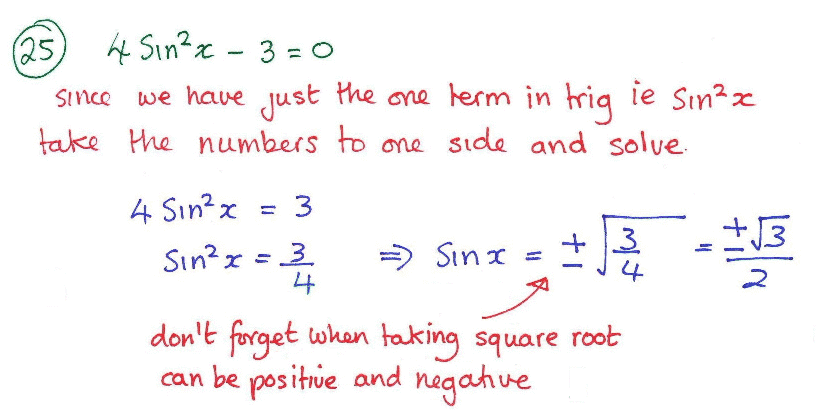 25 4 Sin²x - 3 = 0
since we have just the one term in trig ie Sin²x
take the numbers to one side and solve.
4 Sin²x = 3
Sin²x = 3/4 ⇒ Sin x = ± √(3/4) = ±√3/2
don't forget when taking square root
can be positive and negative